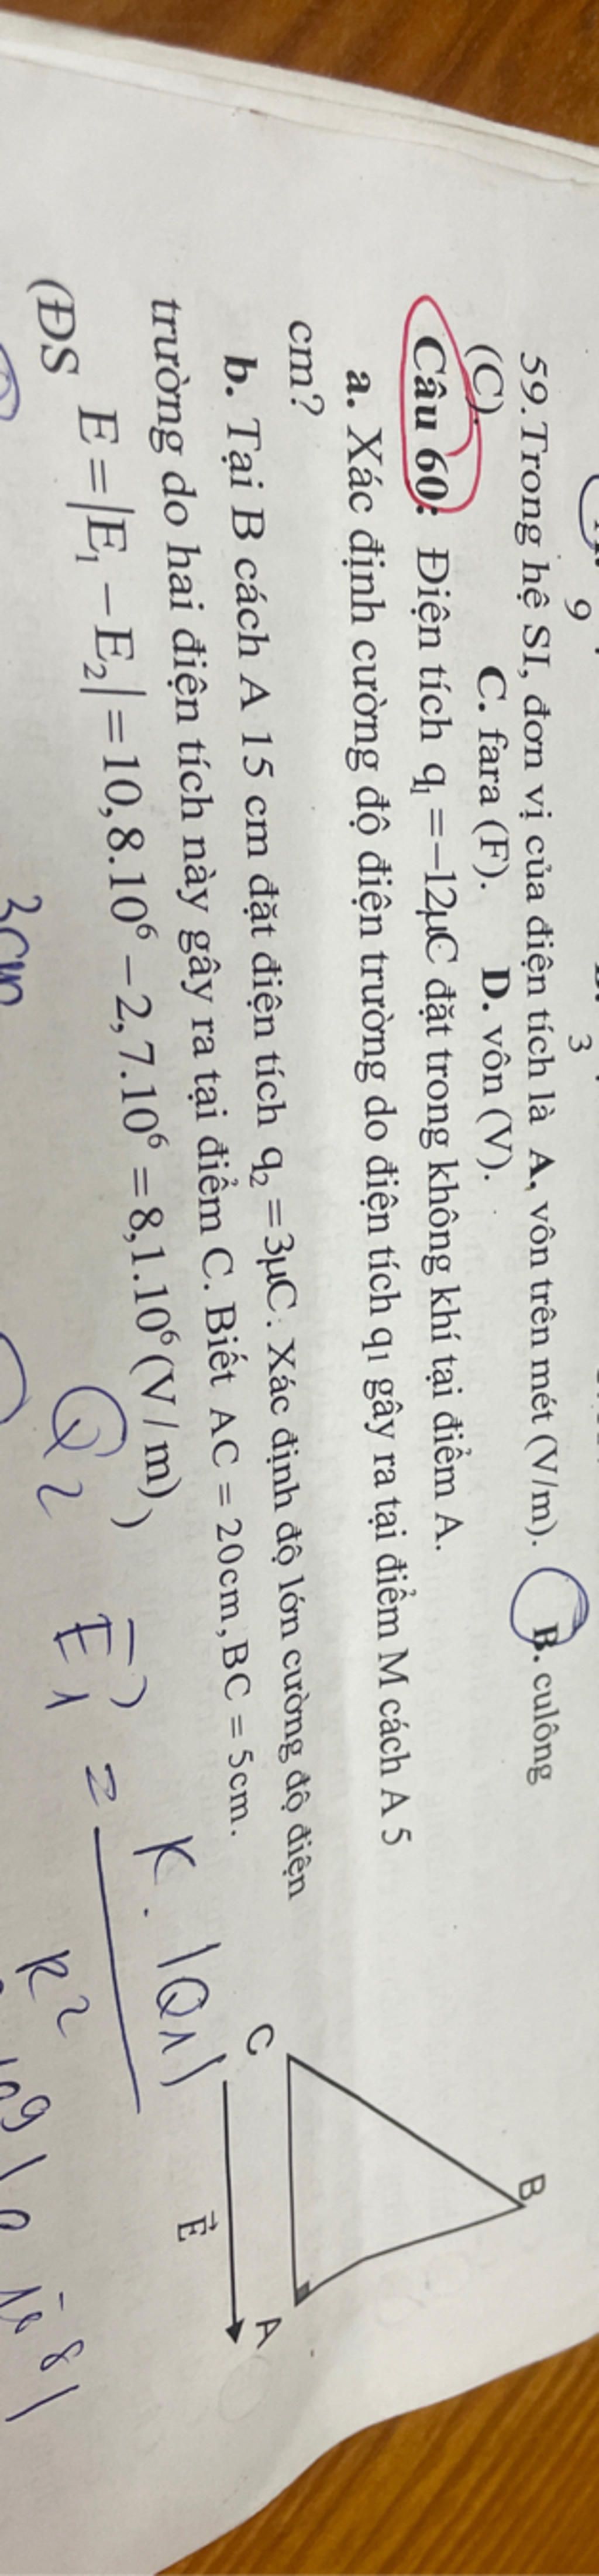 9
3
59.Trong hệ SI, đơn vị của điện tích là A, vôn trên mét (V/m). B. culông
(C). C. fara (F). D. vôn (V).
Câu 60: Điện tích q₁ =−12μC đặt trong không khí tại điểm A.
a. Xác định cường độ điện trường do điện tích q₁ gây ra tại điểm M cách A 5
cm?
b. Tại B cách A 15 cm đặt điện tích q₂ =3μC. Xác định độ lớn cường độ điện
trường do hai điện tích này gây ra tại điểm C. Biết AC = 20cm, BC = 5cm.
(ĐS E=|E₁−E₂|=10,8.10⁶−2,7.10⁶=8,1.10⁶(V/m))
B
C
A
E⃗
3cm
Q₂
E⃗₁ = K.|Q₁|
R²